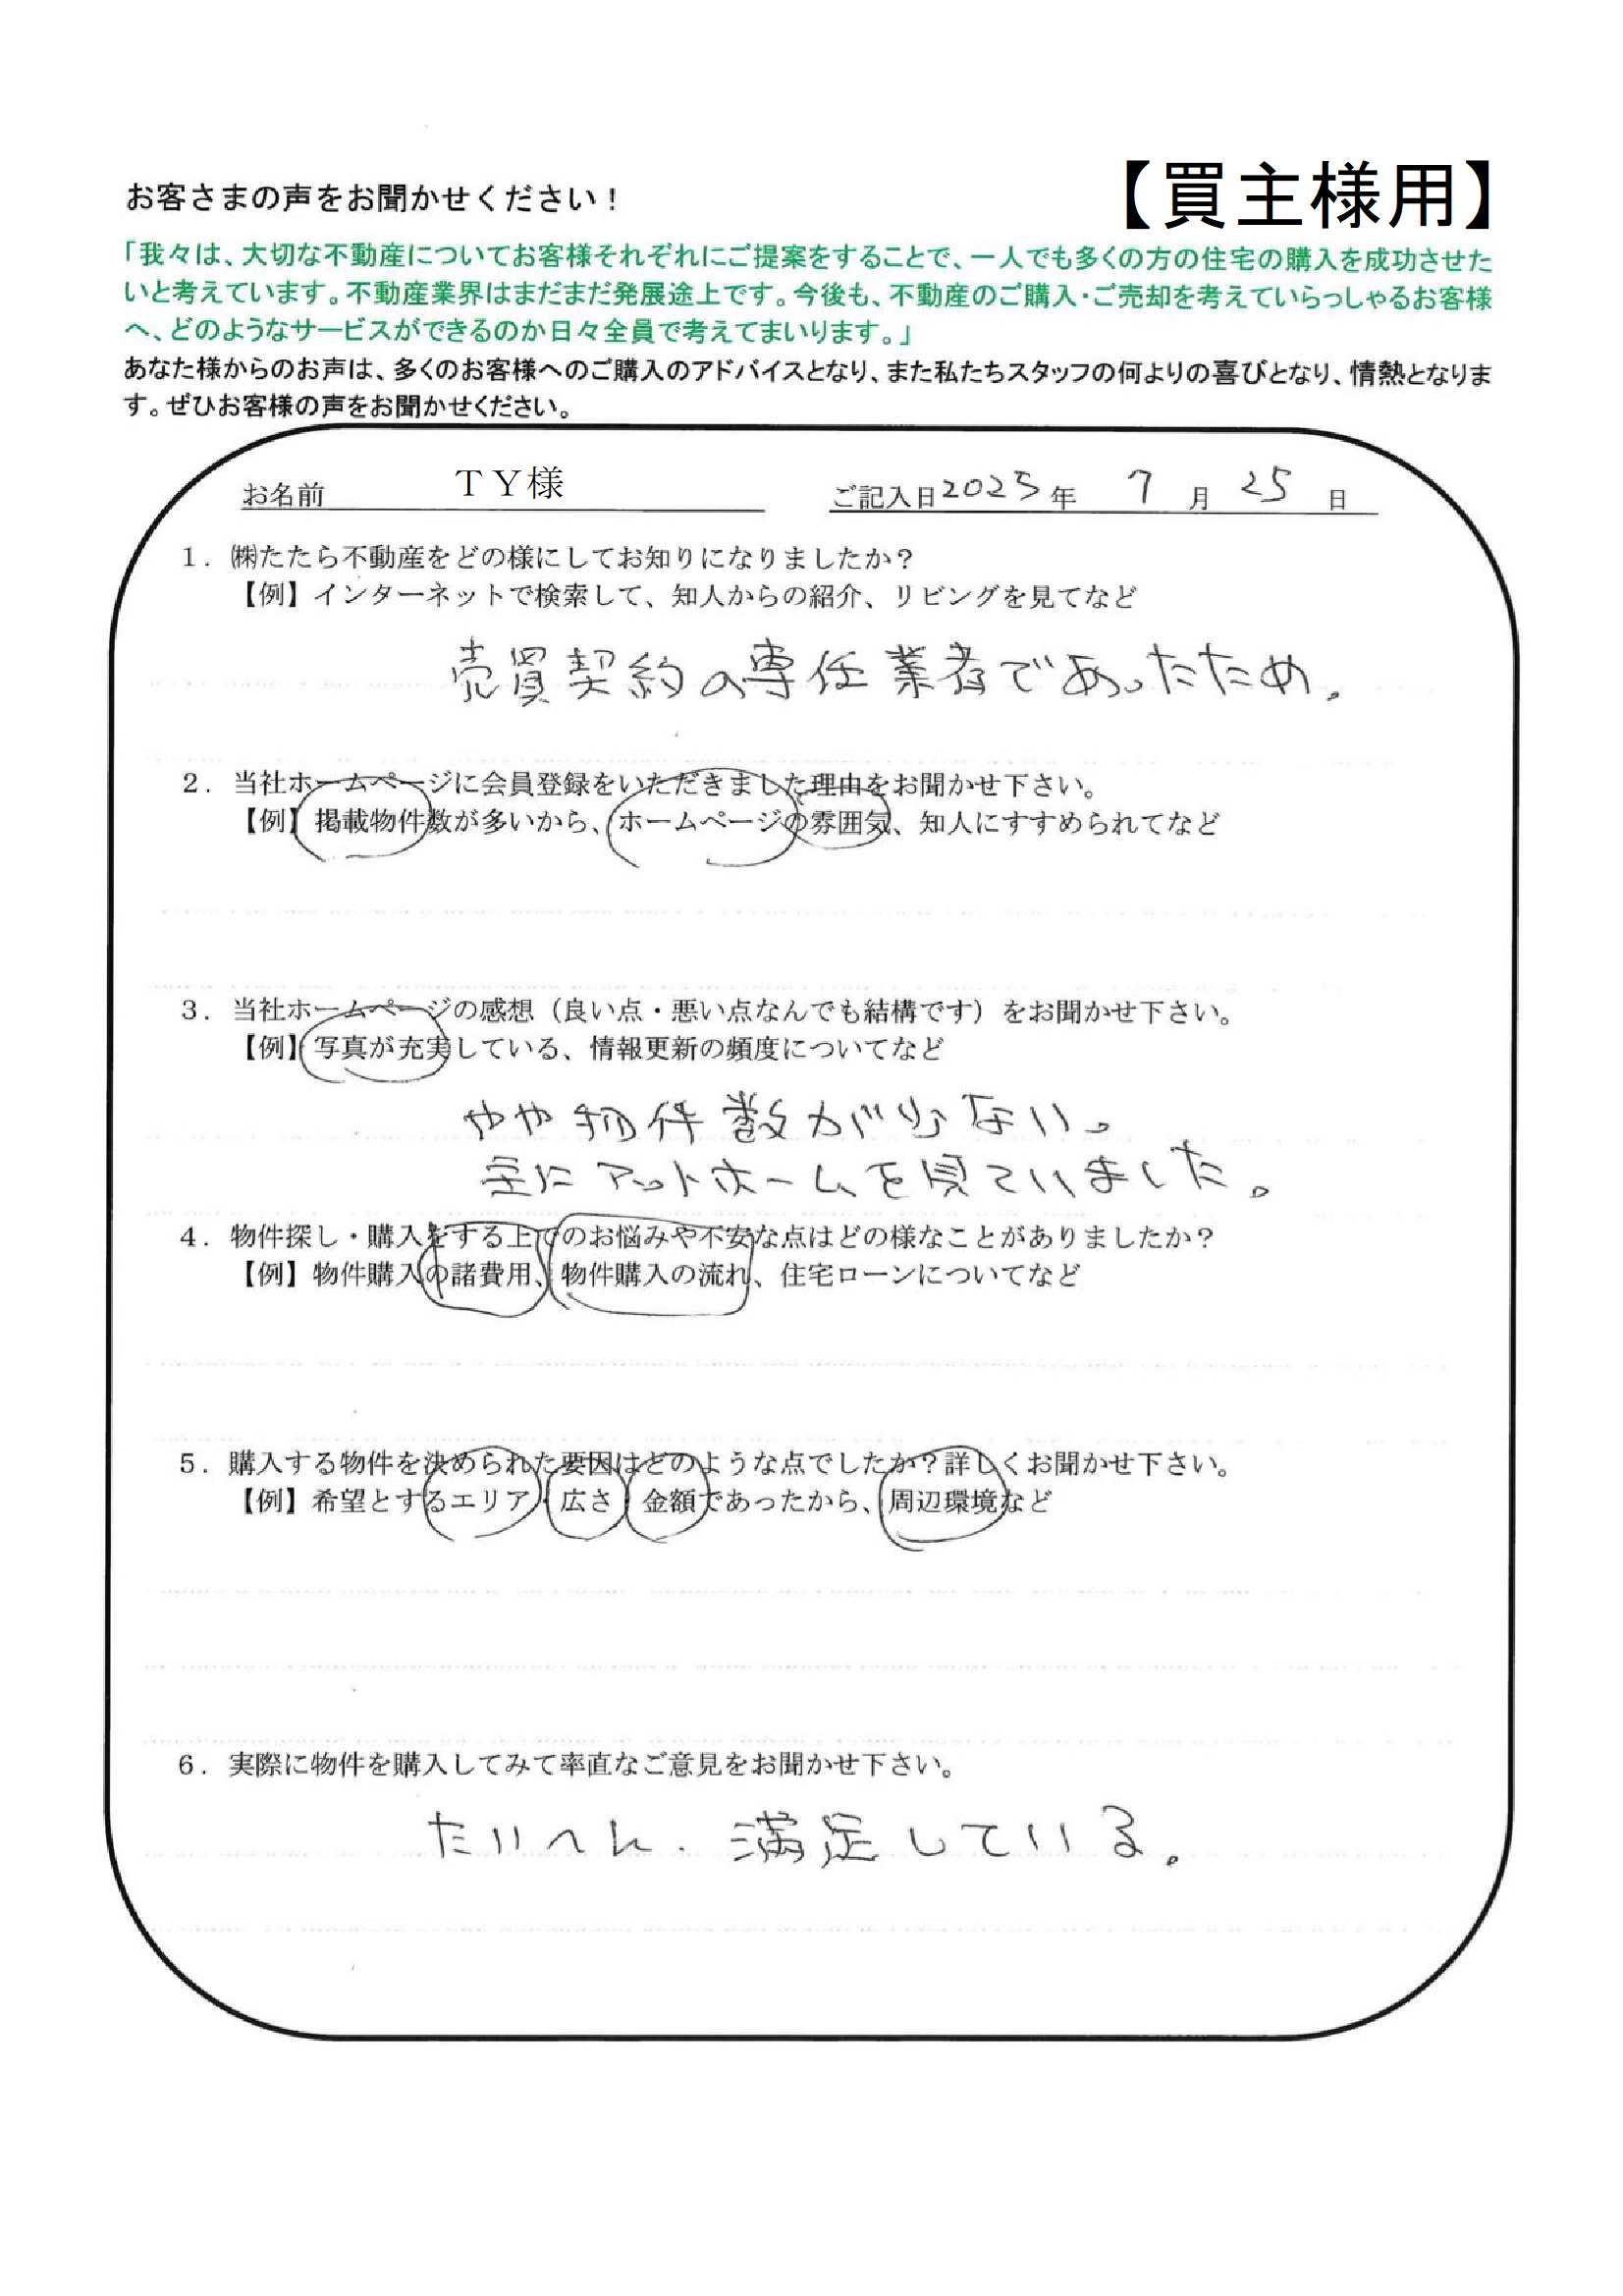 お客さまの声をお聞かせください！
【買主様用】
「我々は、大切な不動産についてお客様それぞれにご提案をすることで、一人でも多くの方の住宅の購入を成功させた
いと考えています。不動産業界はまだまだ発展途上です。今後も、不動産のご購入・ご売却を考えていらっしゃるお客様
へ、どのようなサービスができるのか日々全員で考えてまいります。」
あなた様からのお声は、多くのお客様へのご購入のアドバイスとなり、また私たちスタッフの何よりの喜びとなり、情熱となりま
す。ぜひお客様の声をお聞かせください。
お名前 ＴＹ様 ご記入日2025年 7月 25日
１．㈱たたら不動産をどの様にしてお知りになりましたか？
【例】インターネットで検索して、知人からの紹介、リビングを見てなど
売買契約の専任業者であったため。
２．当社ホームページに会員登録をいただきました理由をお聞かせ下さい。
【例】掲載物件数が多いから、ホームページの雰囲気、知人にすすめられてなど
３．当社ホームページの感想（良い点・悪い点なんでも結構です）をお聞かせ下さい。
【例】写真が充実している、情報更新の頻度についてなど
やや物件数が少ない。
主にアットホームを見ていました。
４．物件探し・購入をする上でのお悩みや不安な点はどの様なことがありましたか？
【例】物件購入の諸費用、物件購入の流れ、住宅ローンについてなど
５．購入する物件を決められた要因はどのような点でしたか？詳しくお聞かせ下さい。
【例】希望とするエリア・広さ・金額であったから、周辺環境など
６．実際に物件を購入してみて率直なご意見をお聞かせ下さい。
たいへん、満足している。